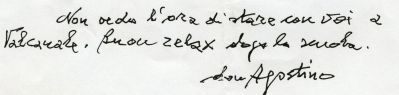 Non vedo l'ora di stare con voi a
Valcanale. Buon relax dopo la scuola.
don Agostino